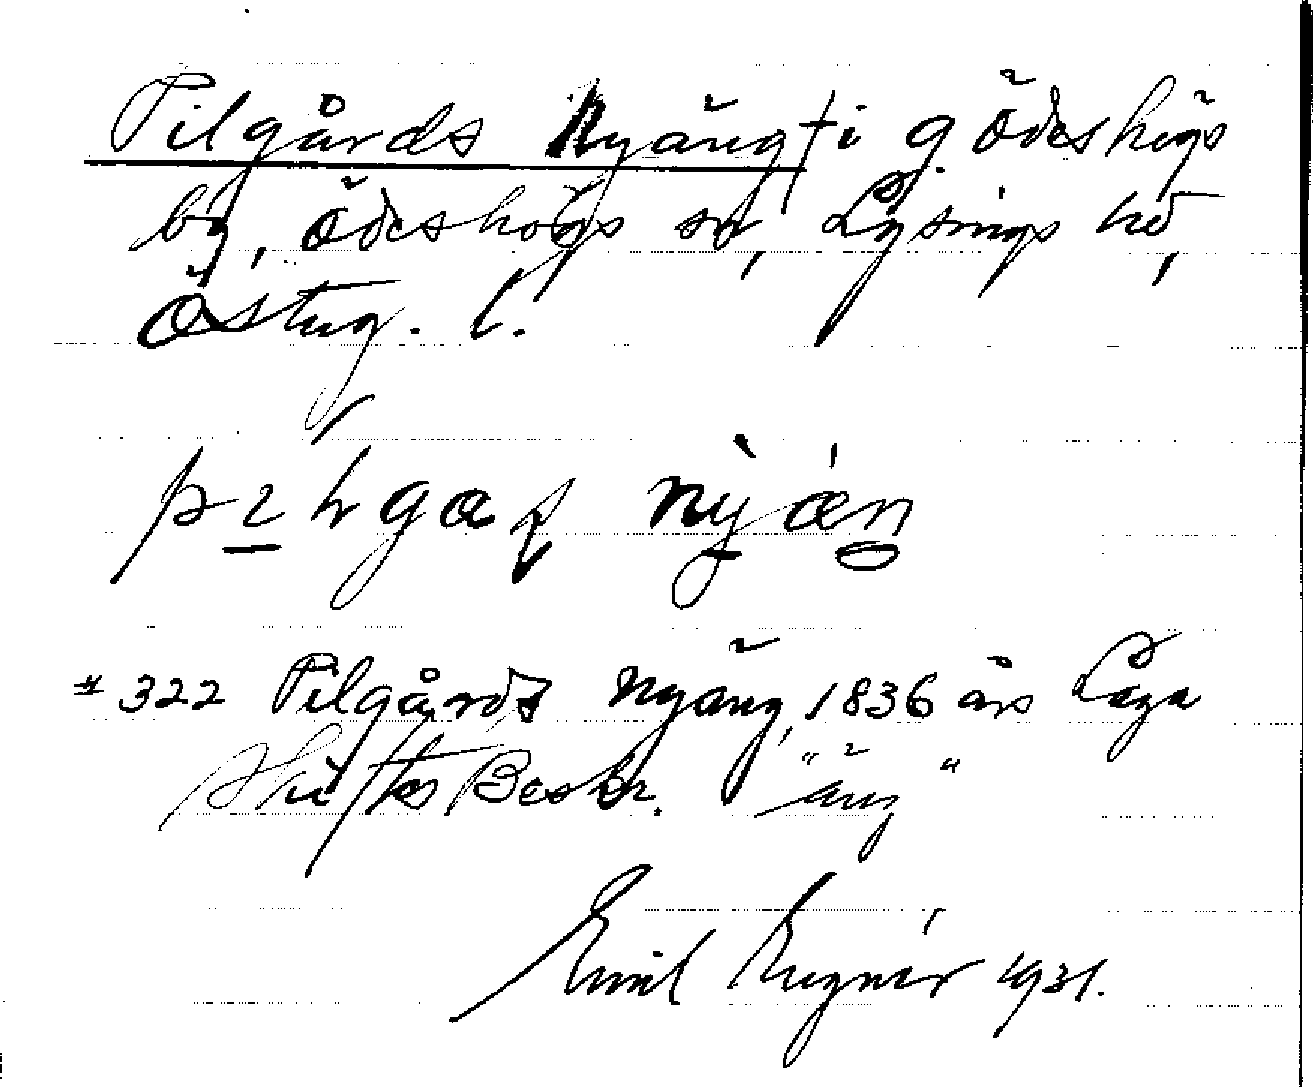 Pilgårds Nyäng † i g. Ödeshögs
by, Ödeshögs sn, Lysings hd,
Östug. l.
nỳ
# 322 Pilgårds Nyäng, 1836 års Laga
Skiftes Beskr. "äng"
Emil 1931.